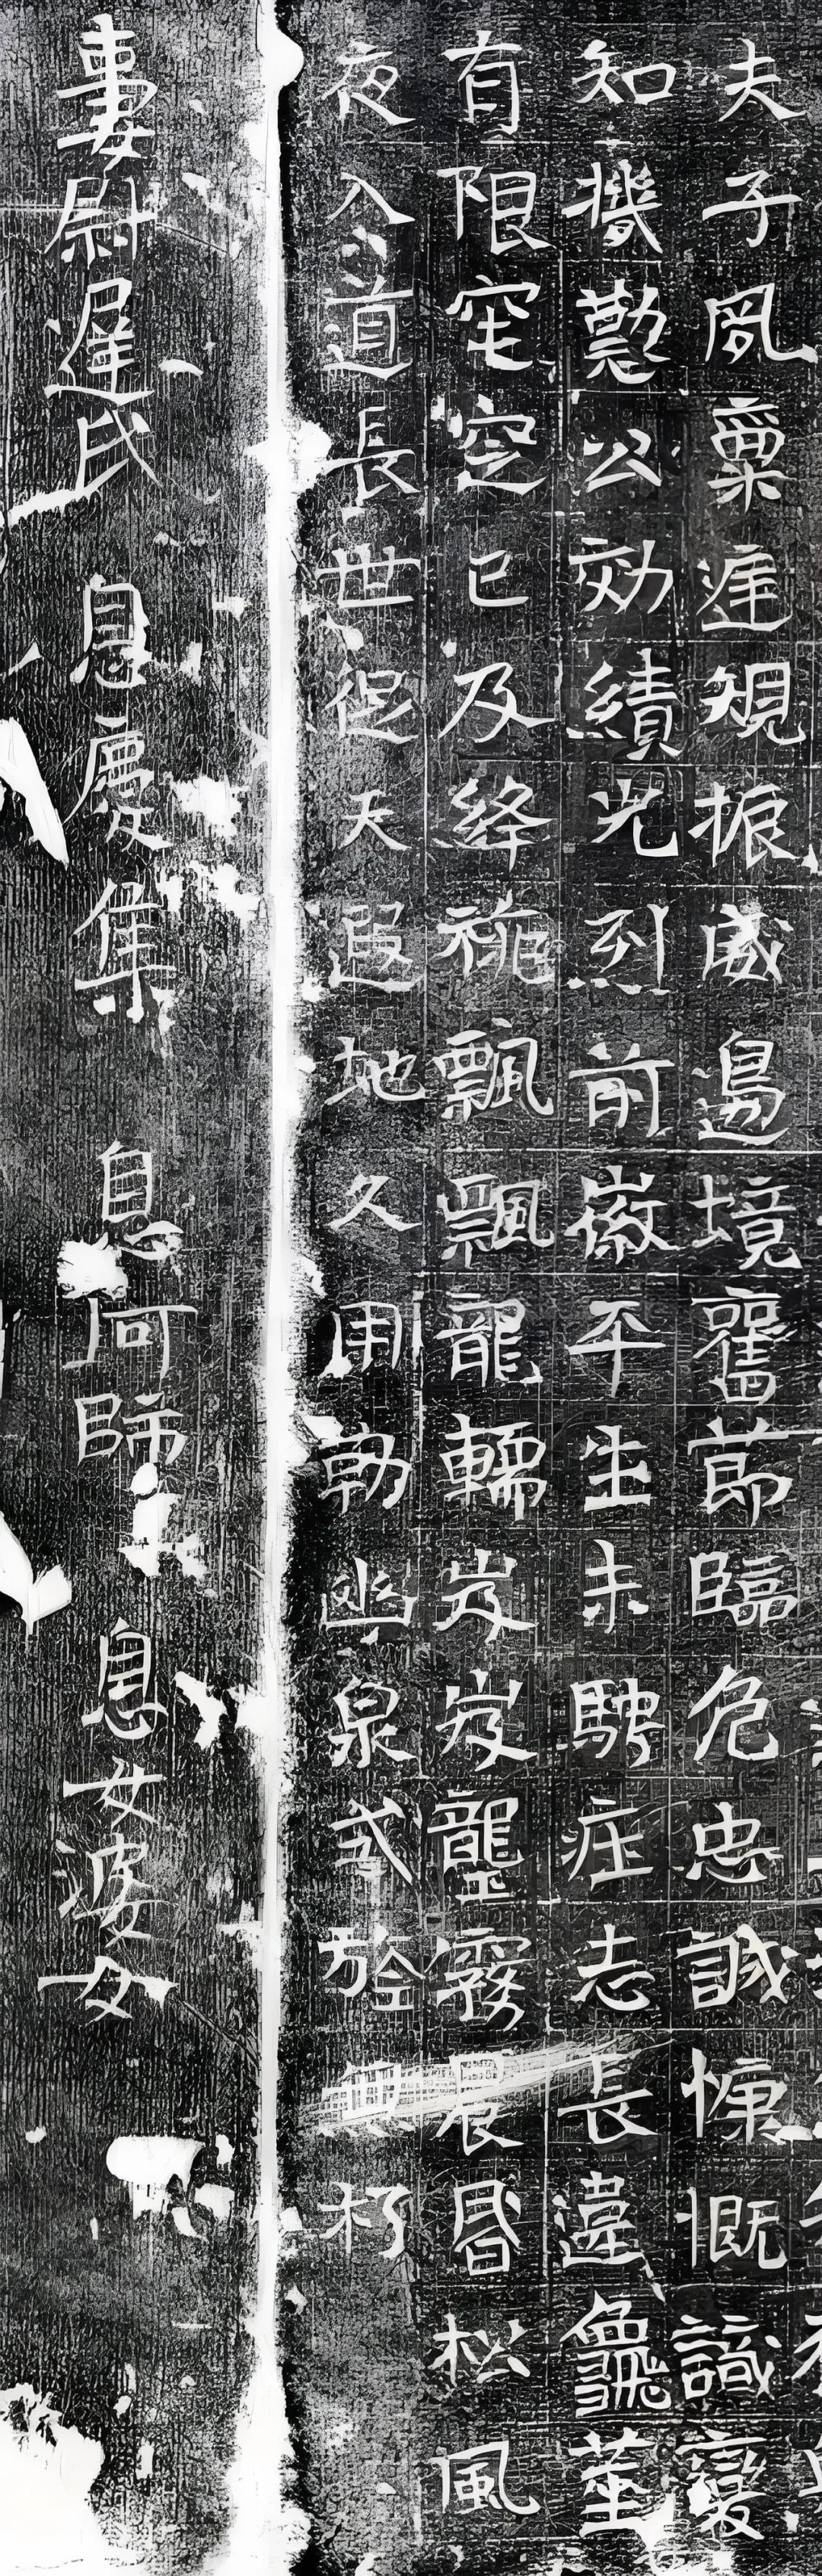 夫子夙稟庭規振威邊境奮節臨危忠誠慷慨識變
知機懃公効績光烈前徽平生未騁壯志長違龜筮
有限窀穸已及絳旐飄飄龍轜岌岌壟霧晨昏松風
夜入道長世促天遐地久用勒幽泉式旌無朽
妻尉遲氏 息慶集 息阿師 息女婆女